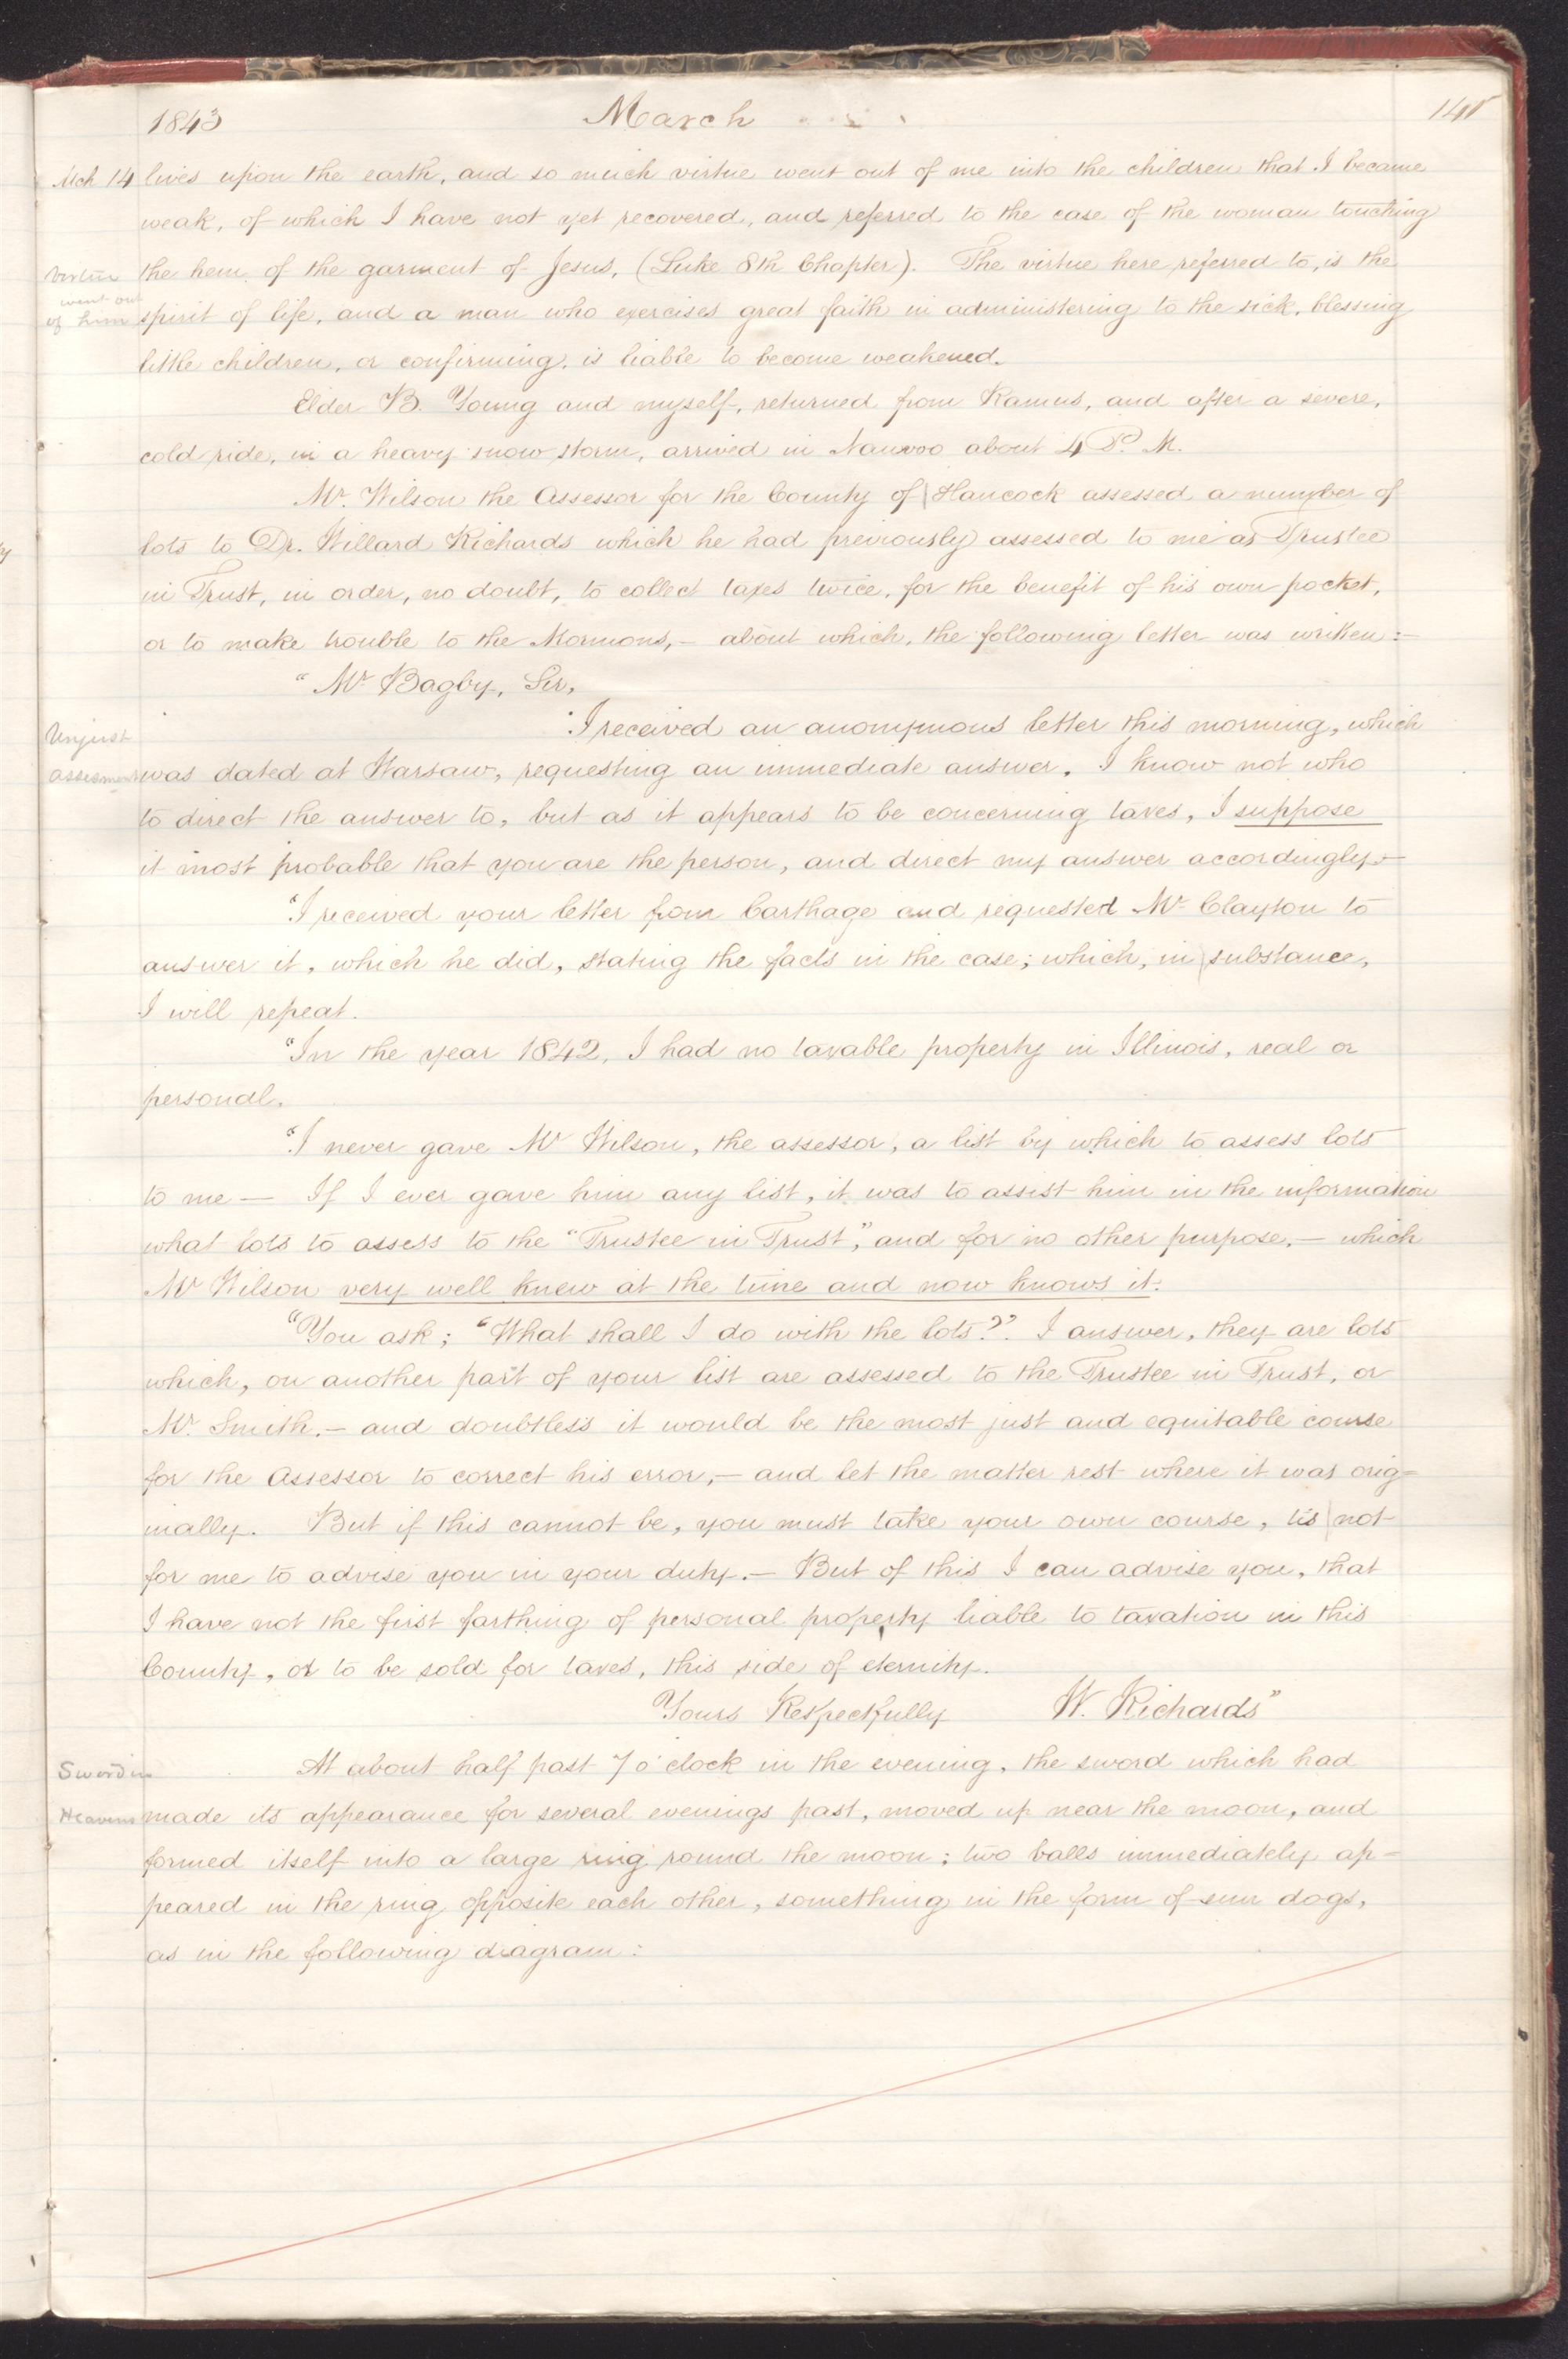 1843 March 141
Mch 14 lives upon the earth, and so much virtue went out of me into the children that I became
weak, of which I have not yet recovered, and referred to the case of the woman touching
Virtue the hem of the garment of Jesus, (Luke 8th Chapter). The virtue here referred to, is the
went out
of him spirit of life, and a man who exercises great faith in administering to the sick, blessing
little children, or confirming, is liable to become weakened.
Elder B. Young and myself, returned from Ramus, and after a severe,
cold ride, in a heavy snow storm, arrived in Nauvoo about 4 P. M.
Mr. Wilson the Assessor for the County of Hancock assessed a number of
lots to Dr. Willard Richards which he had previously assessed to me as Trustee
in Trust, in order, no doubt, to collect taxes twice, for the benefit of his own pocket,
or to make trouble to the Mormons,— about which, the following letter was written:—
"Mr. Bagby, Sir,
Unjust "I received an anonymous letter this morning, which
assesment was dated at Warsaw, requesting an immediate answer. I know not who
to direct the answer to, but as it appears to be concerning taxes, I suppose
it most probable that you are the person, and direct my answer accordingly.—
"I received your letter from Carthage and requested Mr. Clayton to
answer it, which he did, stating the facts in the case; which, in substance,
I will repeat.
"In the year 1842, I had no taxable property in Illinois, real or
personal.
"I never gave Mr Wilson, the assessor, a list by which to assess lots
to me — If I ever gave him any list, it was to assist him in the information
what lots to assess to the "Trustee in Trust", and for no other purpose.— which
Mr Wilson very well knew at the time and now knows it.
"You ask; "What shall I do with the lots?". I answer, they are lots
which, on another part of your list are assessed to the Trustee in Trust, or
Mr. Smith.— and doubtless it would be the most just and equitable course
for the Assessor to correct his error,— and let the matter rest where it was orig=
inally. But if this cannot be, you must take your own course, tis not
for me to advise you in your duty.— But of this I can advise you, that
I have not the first farthing of personal property liable to taxation in this
County, or to be sold for taxes, this side of eternity.
Yours Respectfully W. Richards"
Sword in At about half past 7 o'clock in the evening, the sword which had
Heavens made its appearance for several evenings past, moved up near the moon, and
formed itself into a large ring round the moon; two balls immediately ap=
peared in the ring opposite each other, something in the form of sun dogs,
as in the following diagram: